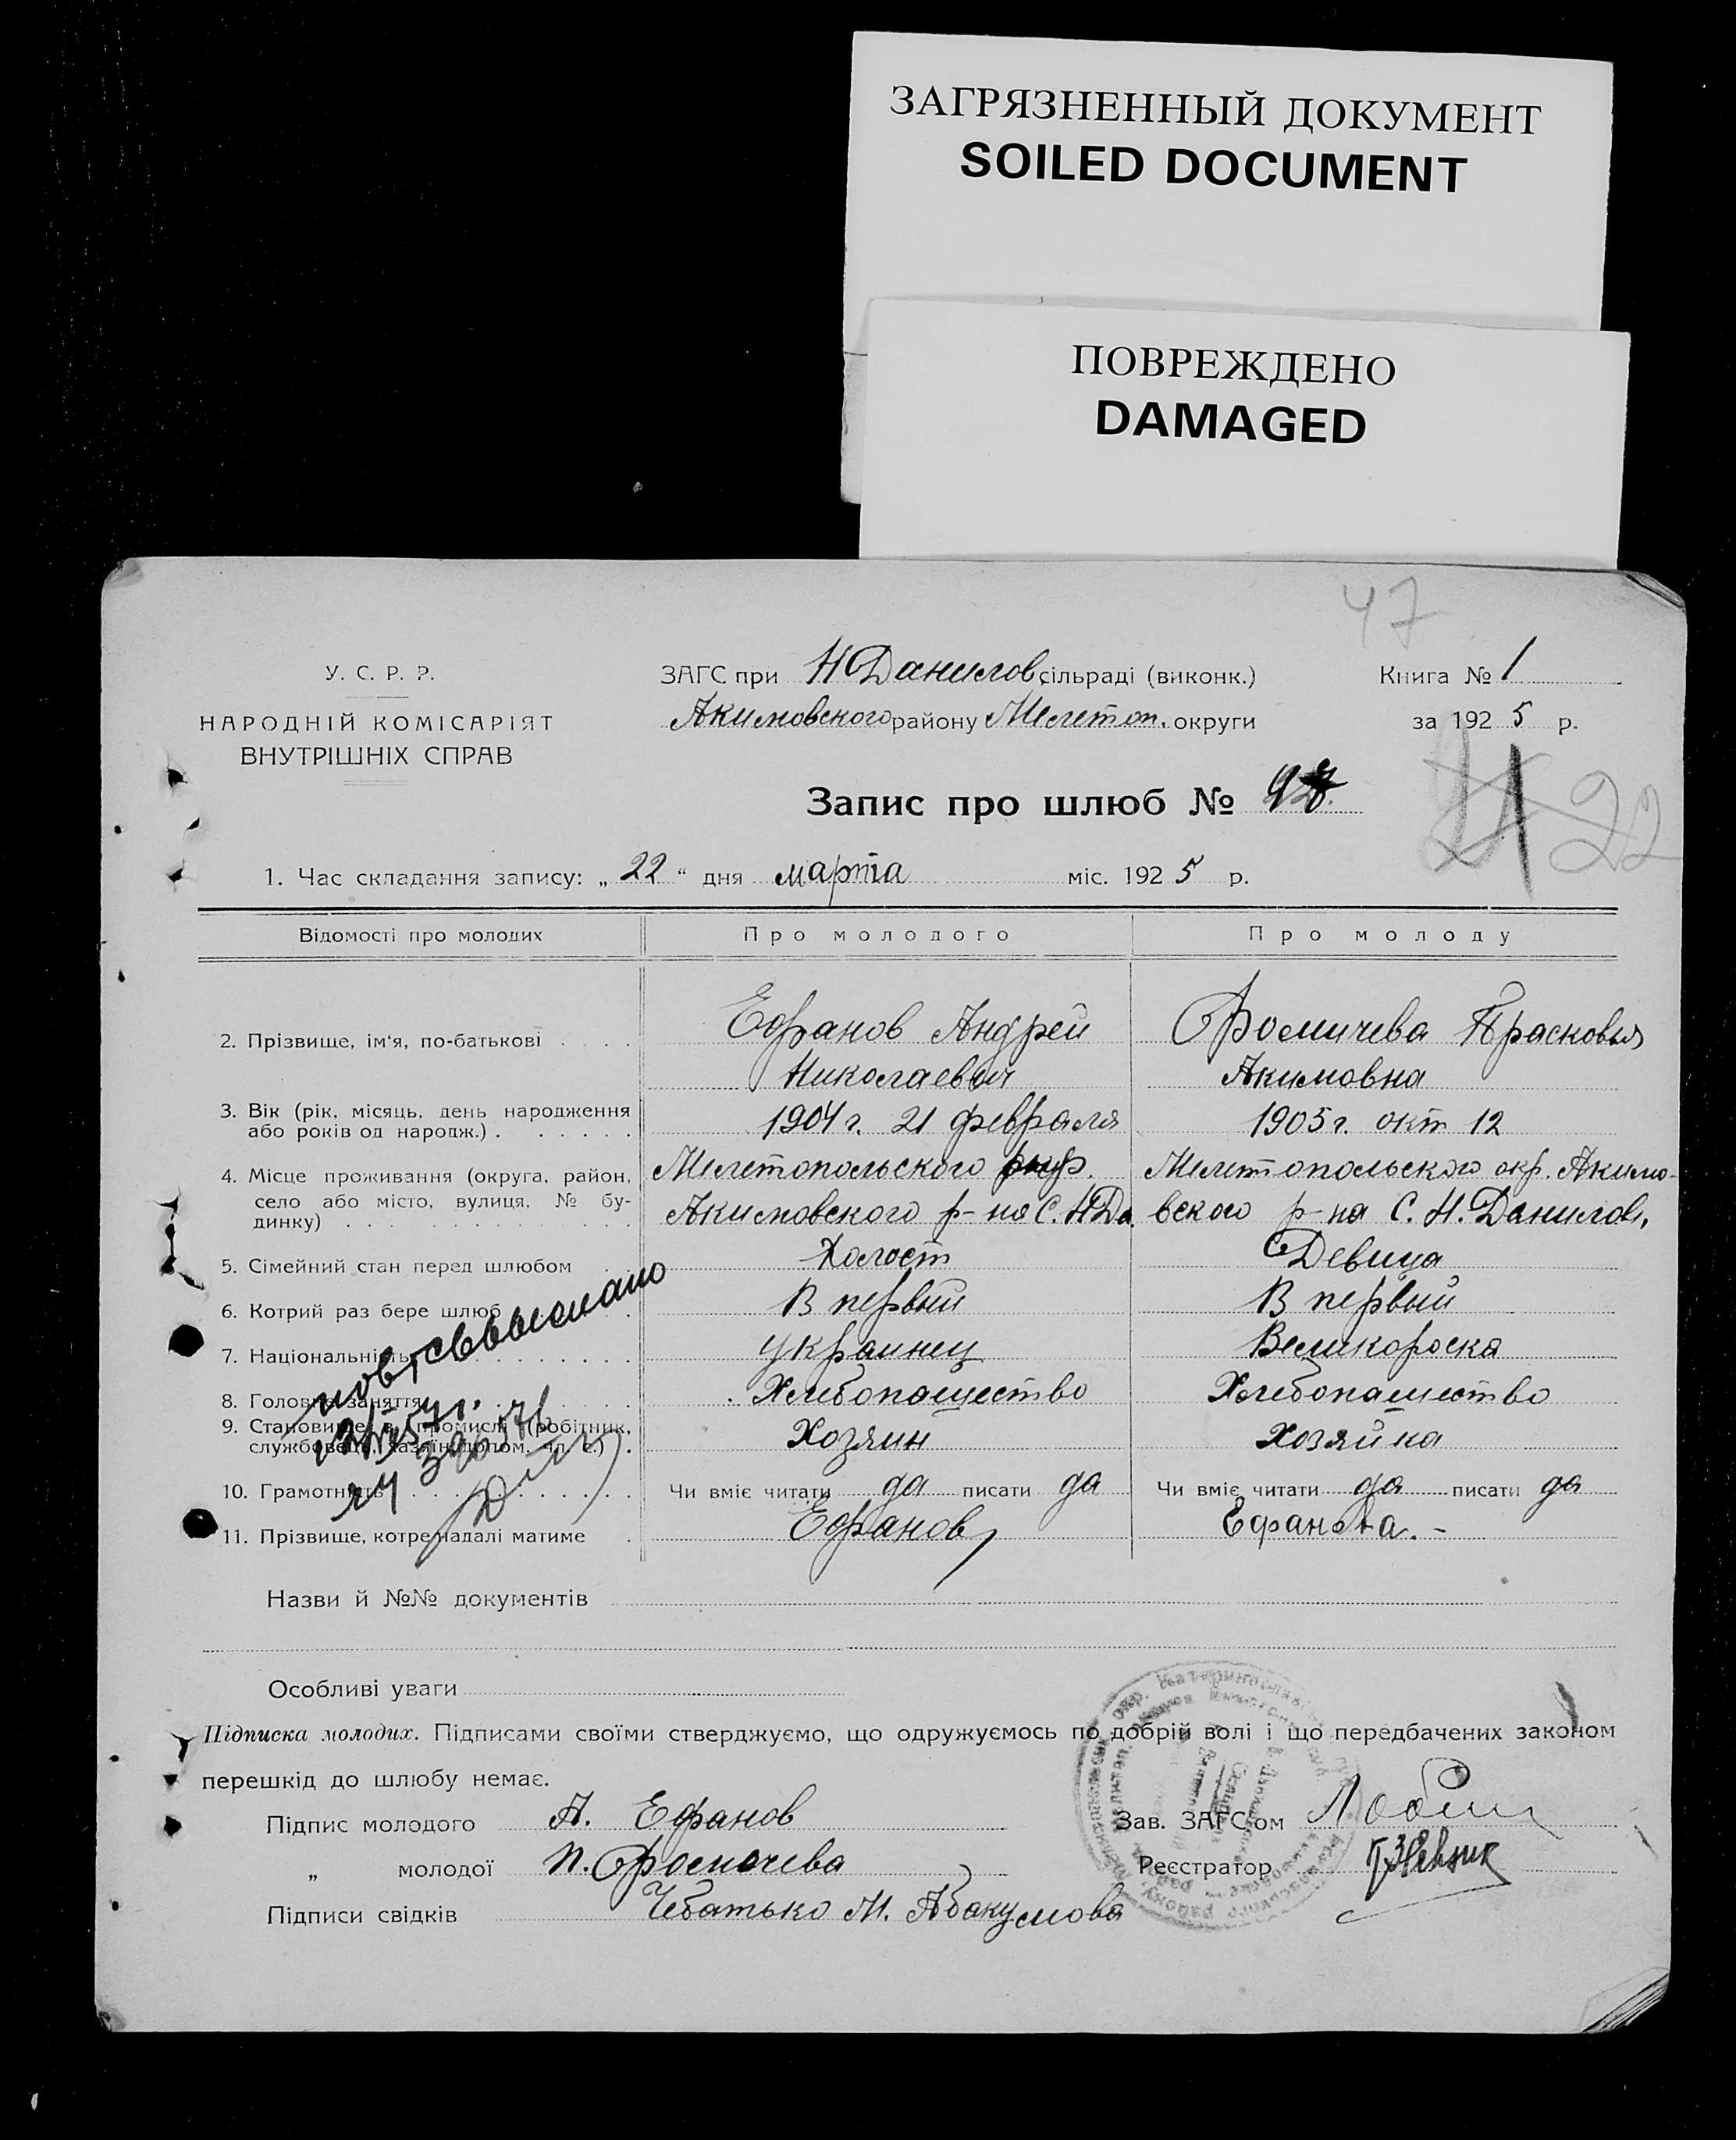 ЗАГРЯЗНЕННЫЙ ДОКУМЕНТ
SOILED DOCUMENT
ПОВРЕЖДЕНО
DAMAGED
47
У. С. Р. Р.
НАРОДНІЙ КОМІСАРІЯТ
ВНУТРІШНІХ СПРАВ
ЗАГС при Н Данилов. сільраді (виконк.)
Акимовского району Мелетоп. округи
Книга № 1
за 192 5 р.
Запис про шлюб №
22
1. Час складання запису: „ 22 “ дня марта міс. 192 5 р.
Відомості про молодих Про молодого Про молоду
2. Прізвище, ім‘я, по-батькові Ефанов Андрей Николаевич
Прасковья Акимовна
3. Вік (рік, місяць, день народження або років од народж.) 1904 г. 21 февраля 1905 г. окт 12
4. Місце проживання (округа, район, село або місто, вулиця, № будинку)
Мелетопольского окр. Мелетопольского окр. Акимо-
Акимовского р-на С. Н Да вского р-на С. Н. Данилов.
5. Сімейний стан перед шлюбом Холост Девица
6. Котрий раз бере шлюб В первый В первый
7. Національність Украинец Великороска
8. Головне заняття Хлебопашество Хлебопашество
9. Становище в промислі (робітник, службовець, хазяїн, допом. чл. с.) Хозяин Хозяйка
10. Грамотність Чи вміє читати да писати да Чи вміє читати да писати да
11. Прізвище, котре надалі матиме Ефанов Ефанова. -
Назви й №№ документів
Особливі уваги
Підписка молодих. Підписами своїми стверджуємо, що одружуємось по добрій волі і що передбачених законом
перешкід до шлюбу немає.
Підпис молодого А. Ефанов
„ молодої П.
Підписи свідків Чебатько М. Абакумова
Зав. ЗАГС'ом
Реєстратор